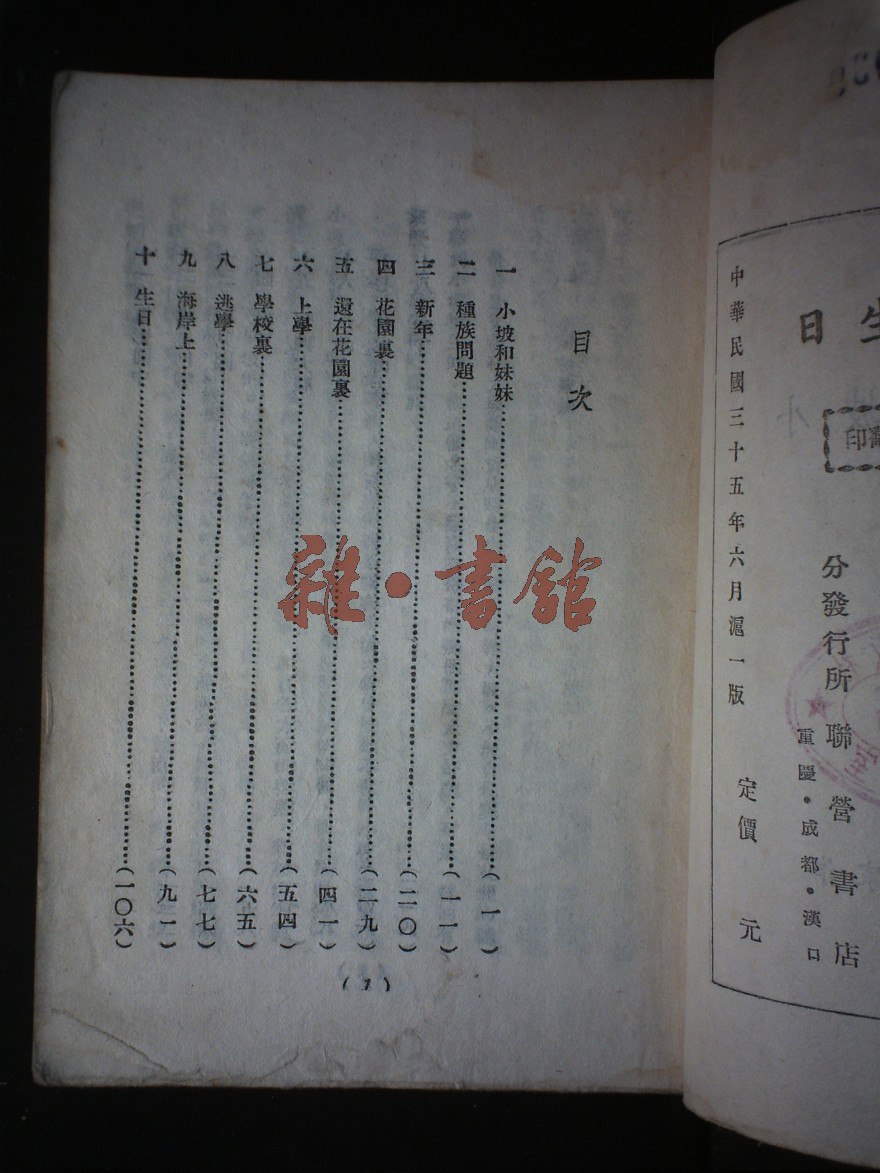 目次
一 小坡和妹妹……(一)
二 種族問題……(一一)
三 新年……(二〇)
四 花園裏……(二九)
五 還在花園裏……(四一)
六 上學……(五四)
七 學校裏……(六五)
八 逃學……(七七)
九 海岸上……(九一)
十 生日……(一〇六)
(1)
雜·書館
生日
翻印
分發行所 聯營書店
重慶·成都·漢口
中華民國三十五年六月滬一版 定價 元